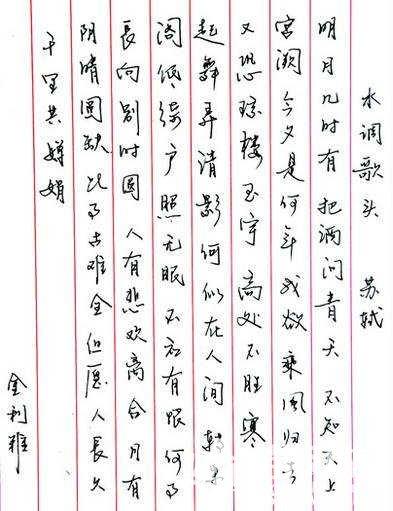 水调歌头 苏轼
明月几时有 把酒问青天 不知天上
宫阙 今夕是何年 我欲乘风归去
又恐琼楼玉宇 高处不胜寒
起舞弄清影 何似在人间 转朱
阁 低绮户 照无眠 不应有恨 何事
长向别时圆 人有悲欢离合 月有
阴晴圆缺 此事古难全 但愿人长久
千里共婵娟
金利雅